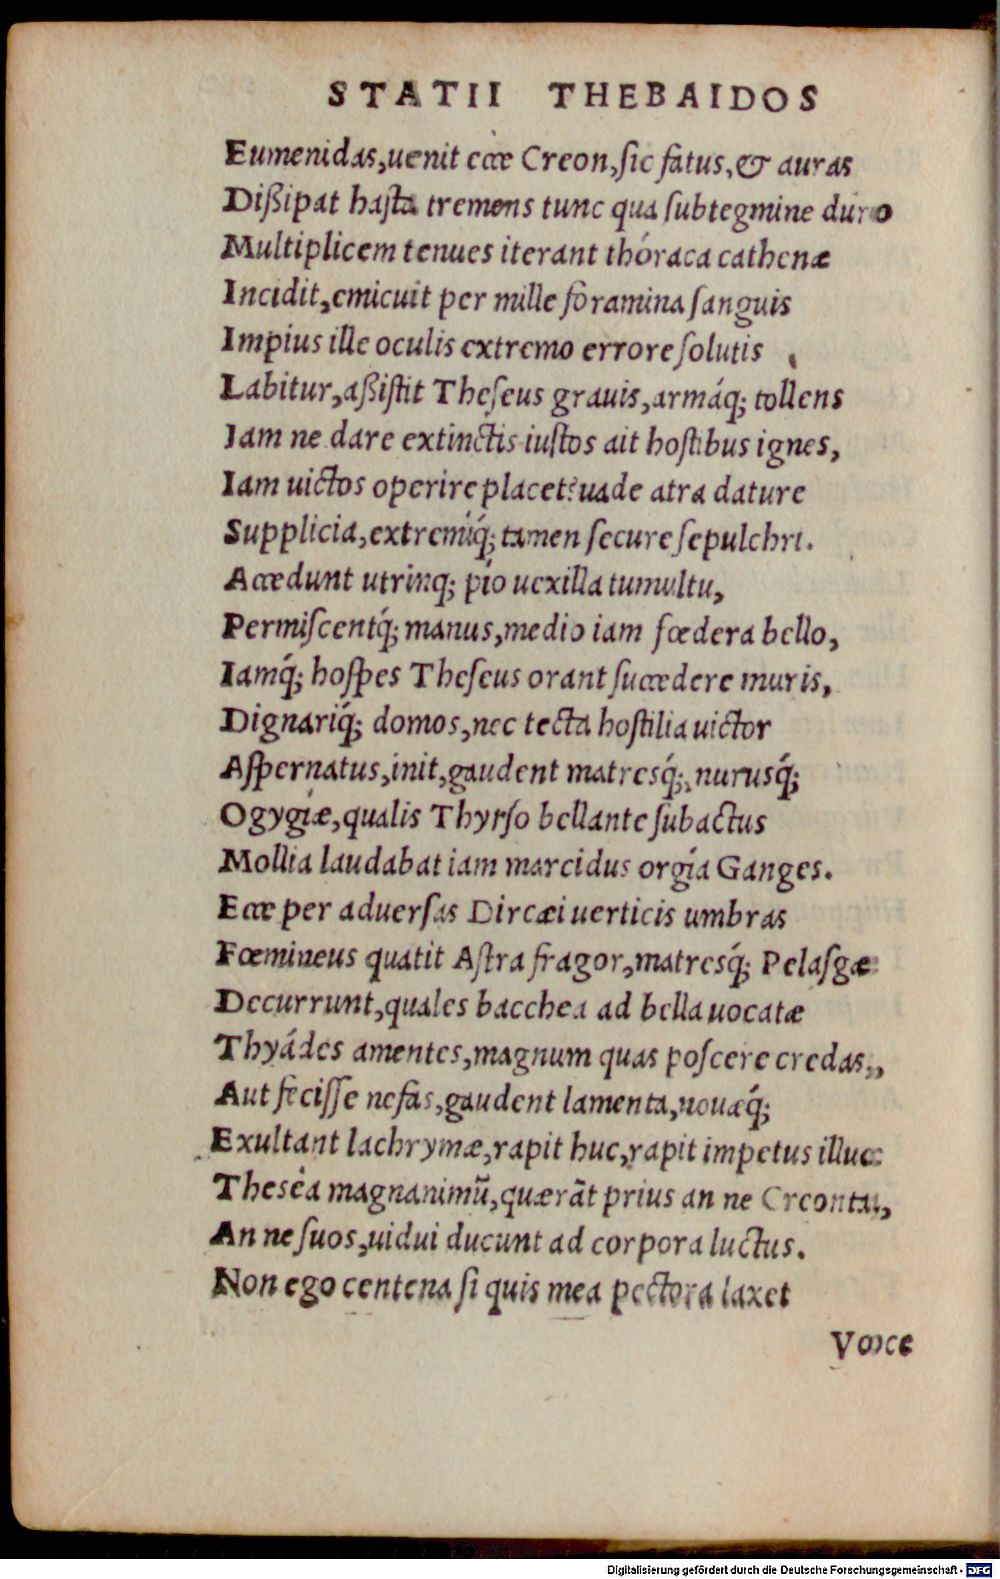 STATII THEBAIDOS
Eumenidas,uenit ecce Creon,ſic fatus,& auras
Dißipat haſta tremens tunc qua ſubtegmine duro
Multiplicem tenues iterant thóraca cathenæ
Incidit,emicuit per mille foramina ſanguis
Impius ille oculis extremo errore ſolutis
Labitur,aßiſtit Theſeus grauis,armáq; tollens
Iam ne dare extinctis iuſtos ait hoſtibus ignes,
Iam uictos operire placet?uade atra dature
Supplicia,extremíq́; tamen ſecure ſepulchri.
Accedunt utrinq; pio uexilla tumultu,
Permiſcentq́; manus,medio iam fœdera bello,
Iamq́; hoſpes Theſeus orant ſuccedere muris,
Dignariq́; domos,nec tecta hoſtilia uictor
Aſpernatus,init,gaudent matresq́;,nurusq́;
Ogygiæ,qualis Thyrſo bellante ſubactus
Mollia laudabat iam marcidus orgia Ganges.
Ecce per aduerſas Dircæi uerticis umbras
Fœmineus quatit Aſtra fragor,matresq́; Pelaſgæ
Decurrunt,quales bacchea ad bella uocatæ
Thyádes amentes,magnum quas poſcere credas,
Aut feciſſe nefas,gaudent lamenta,nouæq́;
Exultant lachrymæ,rapit huc,rapit impetus illuc
Theséa magnanimũ,quærãt prius an ne Creonta,
An ne ſuos,uidui ducunt ad corpora luctus.
Non ego centena ſi quis mea pectora laxet
Voce
Digitalisierung gefördert durch die Deutsche Forschungsgemeinschaft - DFG